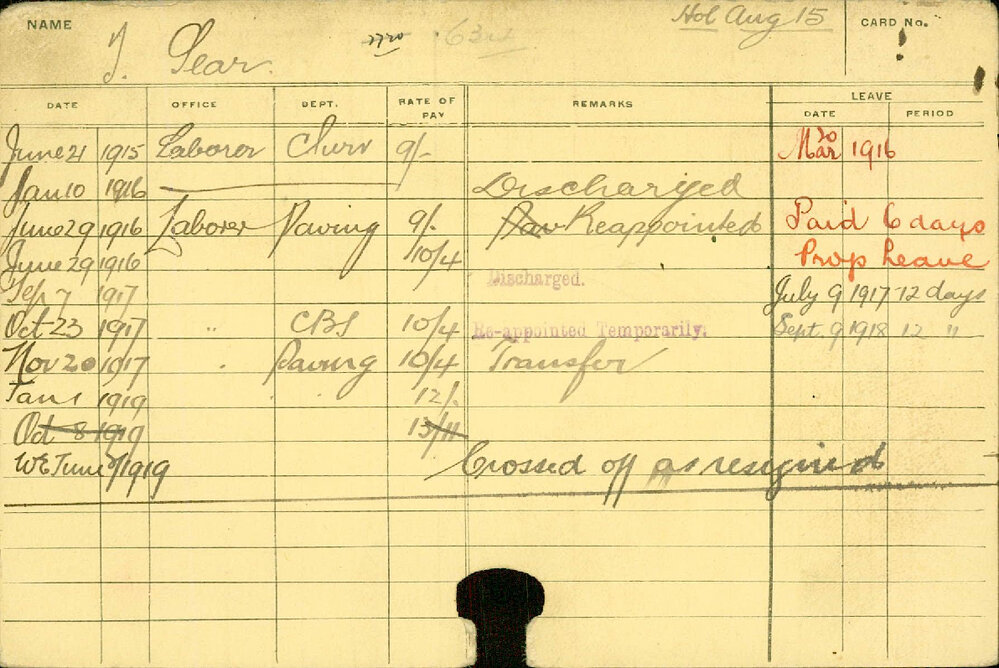 NAME J. Sear. Hol Aug 15 CARD No.
DATE OFFICE DEPT. RATE OF PAY REMARKS LEAVE
DATE PERIOD
June 21 1915 Laborer 9/- Mar 20 1916
Jan 10 1916 Discharged
June 29 1916 Laborer Paving 9/- Reappointed Paid 6 days
June 29 1916 10/4 Prop Leave
Sep 7 1917 Discharged. July 9 1917 12 days
Oct 23 1917 " CBS 10/4 Re-appointed Temporarily. Sept. 9 1918 12 "
Nov 20 1917 " Paving 10/4 Transfer
Jan 1 1919 12/-
Oct 8 1919 13/11
WE June 1919 Crossed off as resigned